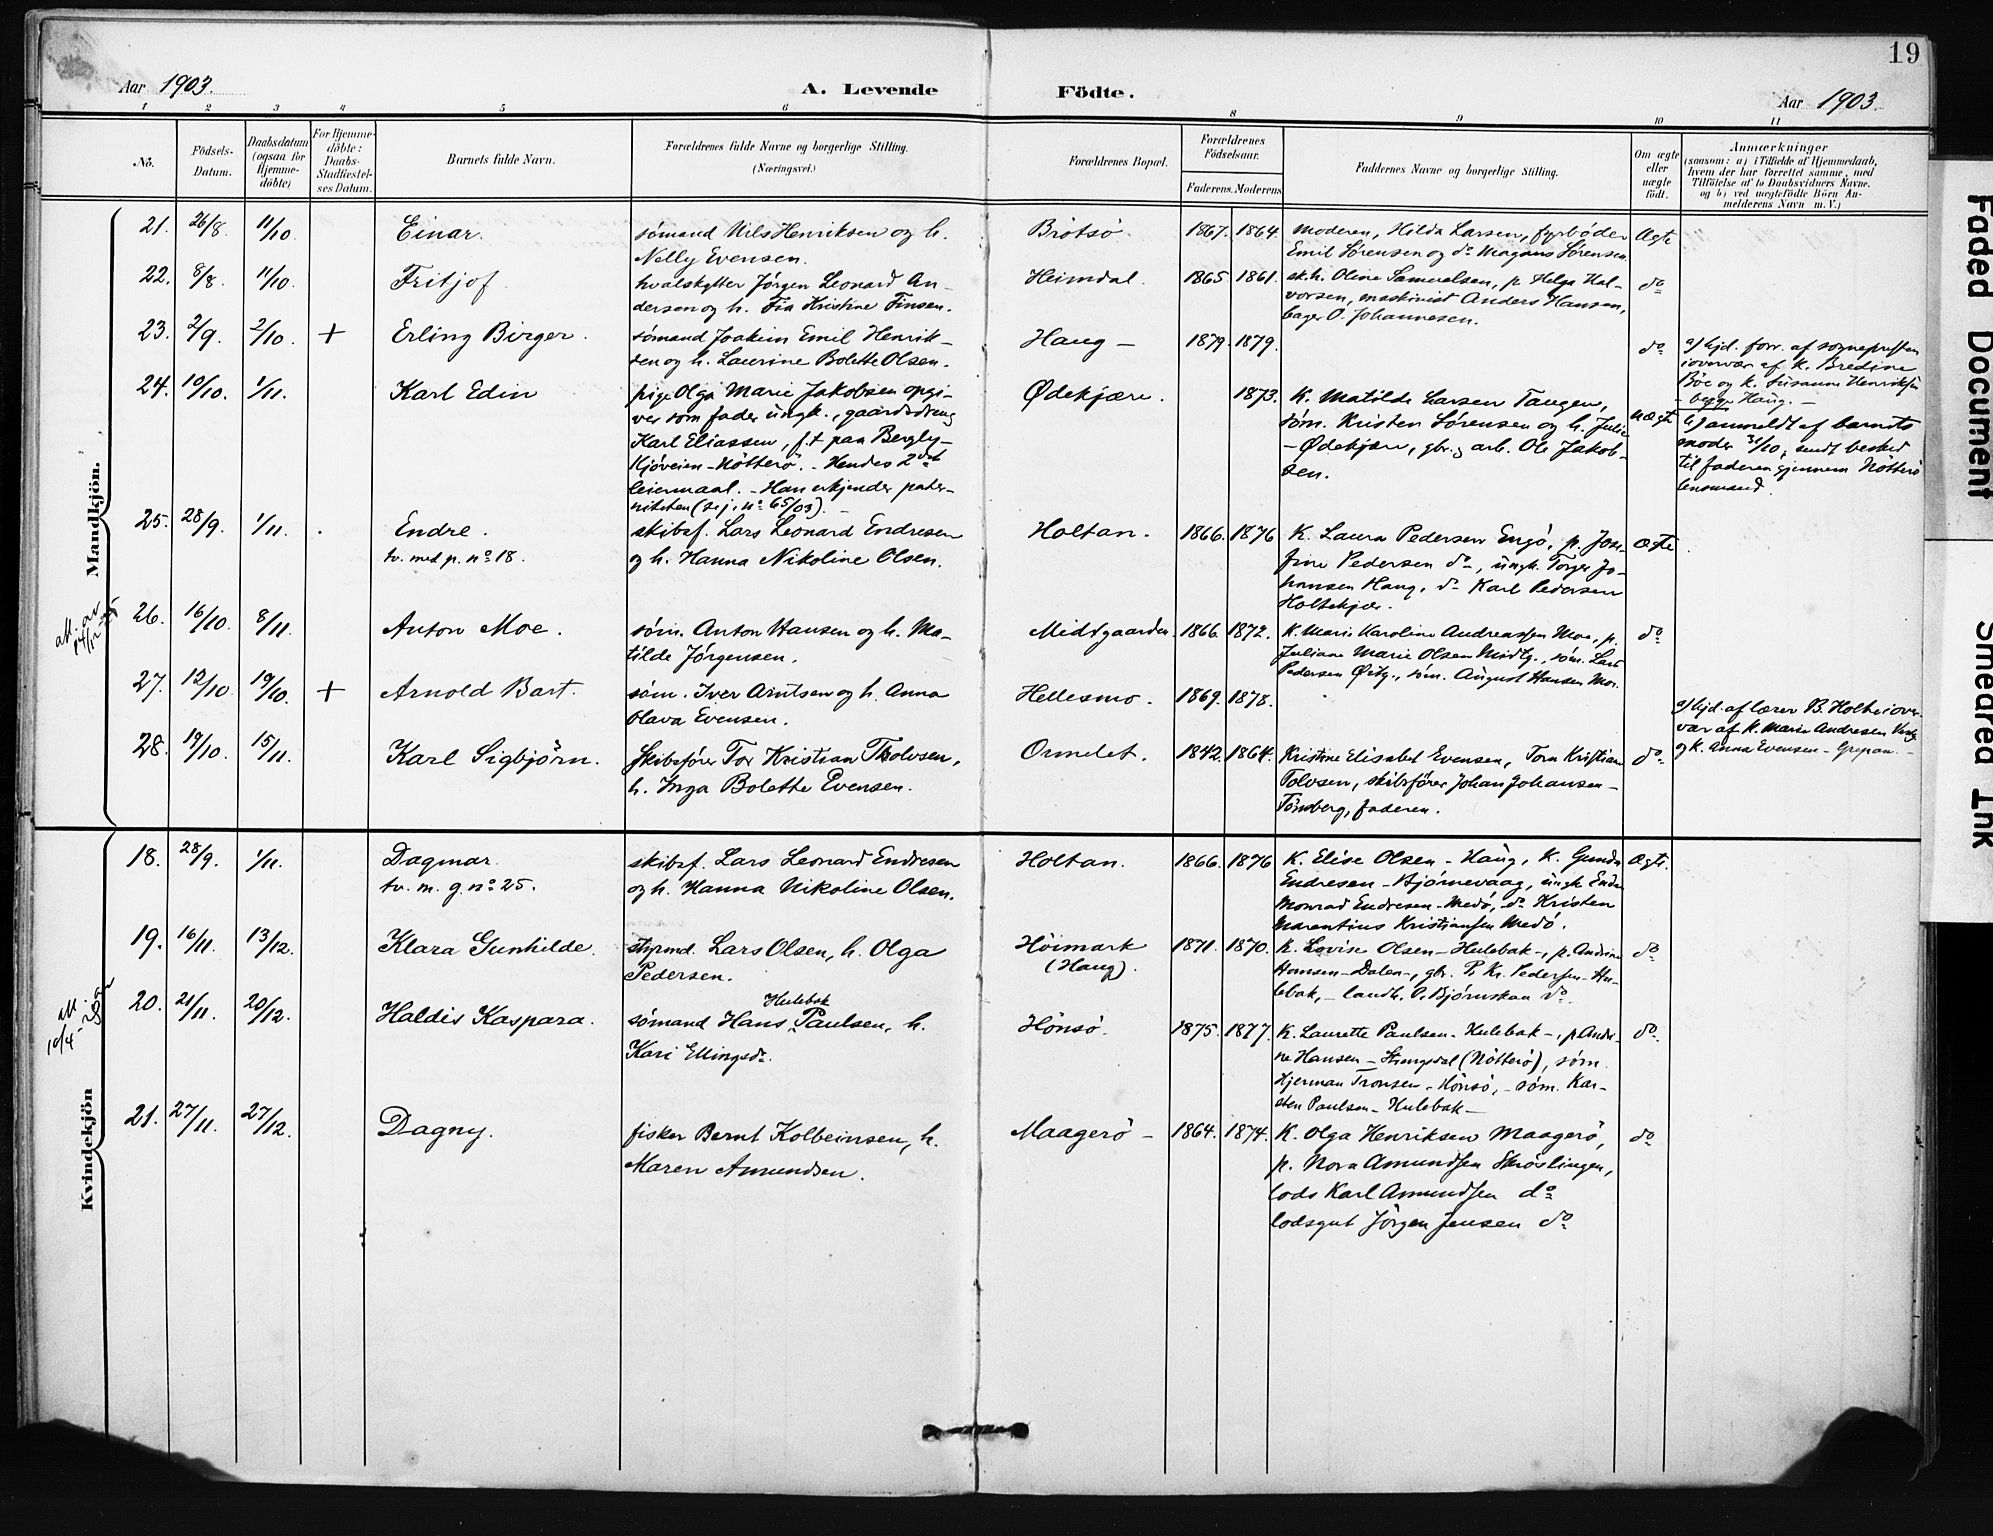 19
Aar 1903.
A. Levende Födte.
Aar 1903.
1 2 3 4 5 6 8 9 10 11
No.
Födsels-Datum.
Daabsdatum (ogsaa for Hjemme-döbte)
For Hjemme-döbte: Daabs-Stadfæstel-ses Datum.
Barnets fulde Navn.
Forældrenes fulde Navne og borgerlige Stilling.
(Næringsvei.)
Forældrenes Bopæl.
Forældrenes Födselsaar.
Faderens. Moderens.
Faddernes Navne og borgerlige Stilling.
Om ægte eller uægte födt.
Anmærkninger
(saasom: a) i Tilfælde af Hjemmedaab,
hvem der har forrettet samme, med
Tilföielse af to Daabsvidners Navne.
og b) ved uegtefödte Börn An-
melderens Navn m. V.)
Mandkjön.
21. 26/8 11/10 Einar.
sømand Nils Henriksen og h.
Nelly Evensen.
Brötsö. 1867. 1864.
Moderen, Hilda Larsen, fyrbøder
Emil Sørensen og do Magnus Sørensen
Ægte
22. 8/8. 11/10. Fritjof
hvalskytter Jørgen Leonard An-
dersen og h. Fia Kristine Finsen.
Heimdal. 1865 1861.
sk.h. Oline Samuelsen, p. Helga Hal-
vorsen, maskinist Anders Hansen,
bager O. Johannesen.
do
23. 2/9. 2/10. + Erling Birger.
sømand Joakim Emil Henrik-
sen og h. Laurine Bolette Olsen.
Haug - 1879. 1879.
do
a) hjd. forr. af sognepresten
i overvær af k. Bredine
Böe og k. Susanne Henriksen
- begge Haug. -
24. 10/10. 1/11. Karl Edin
pige Olga Marie Jakobsen opgi-
ver som fader ungk., gaardsdreng
Karl Eliassen, f. + paa Bergly-
Kjöveien - Nötterö. - Hendes 2det
leiermaal. - Han erkjender pater-
niteten (se j. no 65/03). -
Ødekjære. 1873.
K. Matilde Larsen Tangen,
søm. Kristen Sørensen og h. Julie
- Ødekjære, gbr. arb. Ole Jakob-
sen.
uægte
b) anmeldt af barnets
moder 31/10, sendt besked
til faderen gjennem Nötterö
lensmand.
25. 28/9. 1/11. Endre.
tv. med p. no 18.
skibsf. Lars Leonard Endresen
og h. Hanna Nikoline Olsen.
Holtan. 1866. 1876
K. Laura Pedersen Engö, p. Jose-
fine Pedersen do, ungk. Torger Jo-
hansen Haug, do Karl Pedersen
Holtekjær.
ægte
26. 16/10. 8/11. Anton Moe.
søm. Anton Hansen og h. Ma-
tilde Jørgensen.
Midtgaarden 1866. 1872.
K. Marie Karoline Andreassen Moe, p.
Juliane Marie Olsen Midtg., søm. Lars
Pedersen, søm. August Hansen Moe.
do
27. 12/10 19/10. + Arnold Bart.
søm. Iver Arntsen og h. Anna
Olava Evensen.
Hellesmo. 1869. 1878.
a) hjd. af lærer B. Holte i over-
vær af k. Marie Andresen
og k. Anna Evensen - Grepan. -
28. 19/10. 15/11. Karl Sigbjörn.
skibsfører Tor Kristian Tholvsen,
h. Inga Bolette Evensen.
Ormelet. 1842. 1864.
Kristine Elisabet Evensen, Tora Kristiane
Tolvsen, skibsfører Johan Johansen -
Tönsberg, faderen.
do
Kvindekjön
18. 28/9. 1/11. Dagmar.
tv. m. g. no 25.
skibsf. Lars Leonard Endresen
og h. Hanna Nikoline Olsen.
Holtan. 1866. 1876
K. Elise Olsen - Haug, K. Gunda
Endresen - Bjørnevaag, ungk.
Monrad Endresen - Medö, do Kristen
Marentius Kristiansen Medö.
Ægte.
19. 16/11. 13/12. Klara Gunhilde.
styrmd. Lars Olsen, h. Olga
Pedersen.
Höimark
(Haug).
1871. 1870.
K. Lovise Olsen - Hulebak -, p. Andrine
Hansen - Dalen -, gbr. P. Kr. Pedersen - Hu-
lebak, - landh. O. Bjørnskau do.
do
20. 21/11. 20/12. Haldis Kaspara.
Hulebak
sømand Hans Paulsen, h.
Kari Ellingsdr.
Hönsö. 1875. 1877.
K. Laurette Paulsen - Hulebak -, p. Andri-
ne Hansen - Strengsdal (Nötterö), søm.
Hjerman Tronsen - Hönsö, - søm. Kar-
sten Paulsen - Hulebak -
do.
21. 27/11. 27/12. Dagny.
fisker Bernt Kolbeinsen, h.
Maren Amundsen.
Maagerö - 1864. 1874.
K. Olga Henriksen Maagerö,
p. Nora Amundsen Skröslingen,
lods Karl Amundsen do
lodsgut Jörgen Jensen do
do
Faded Document
Smeared Ink